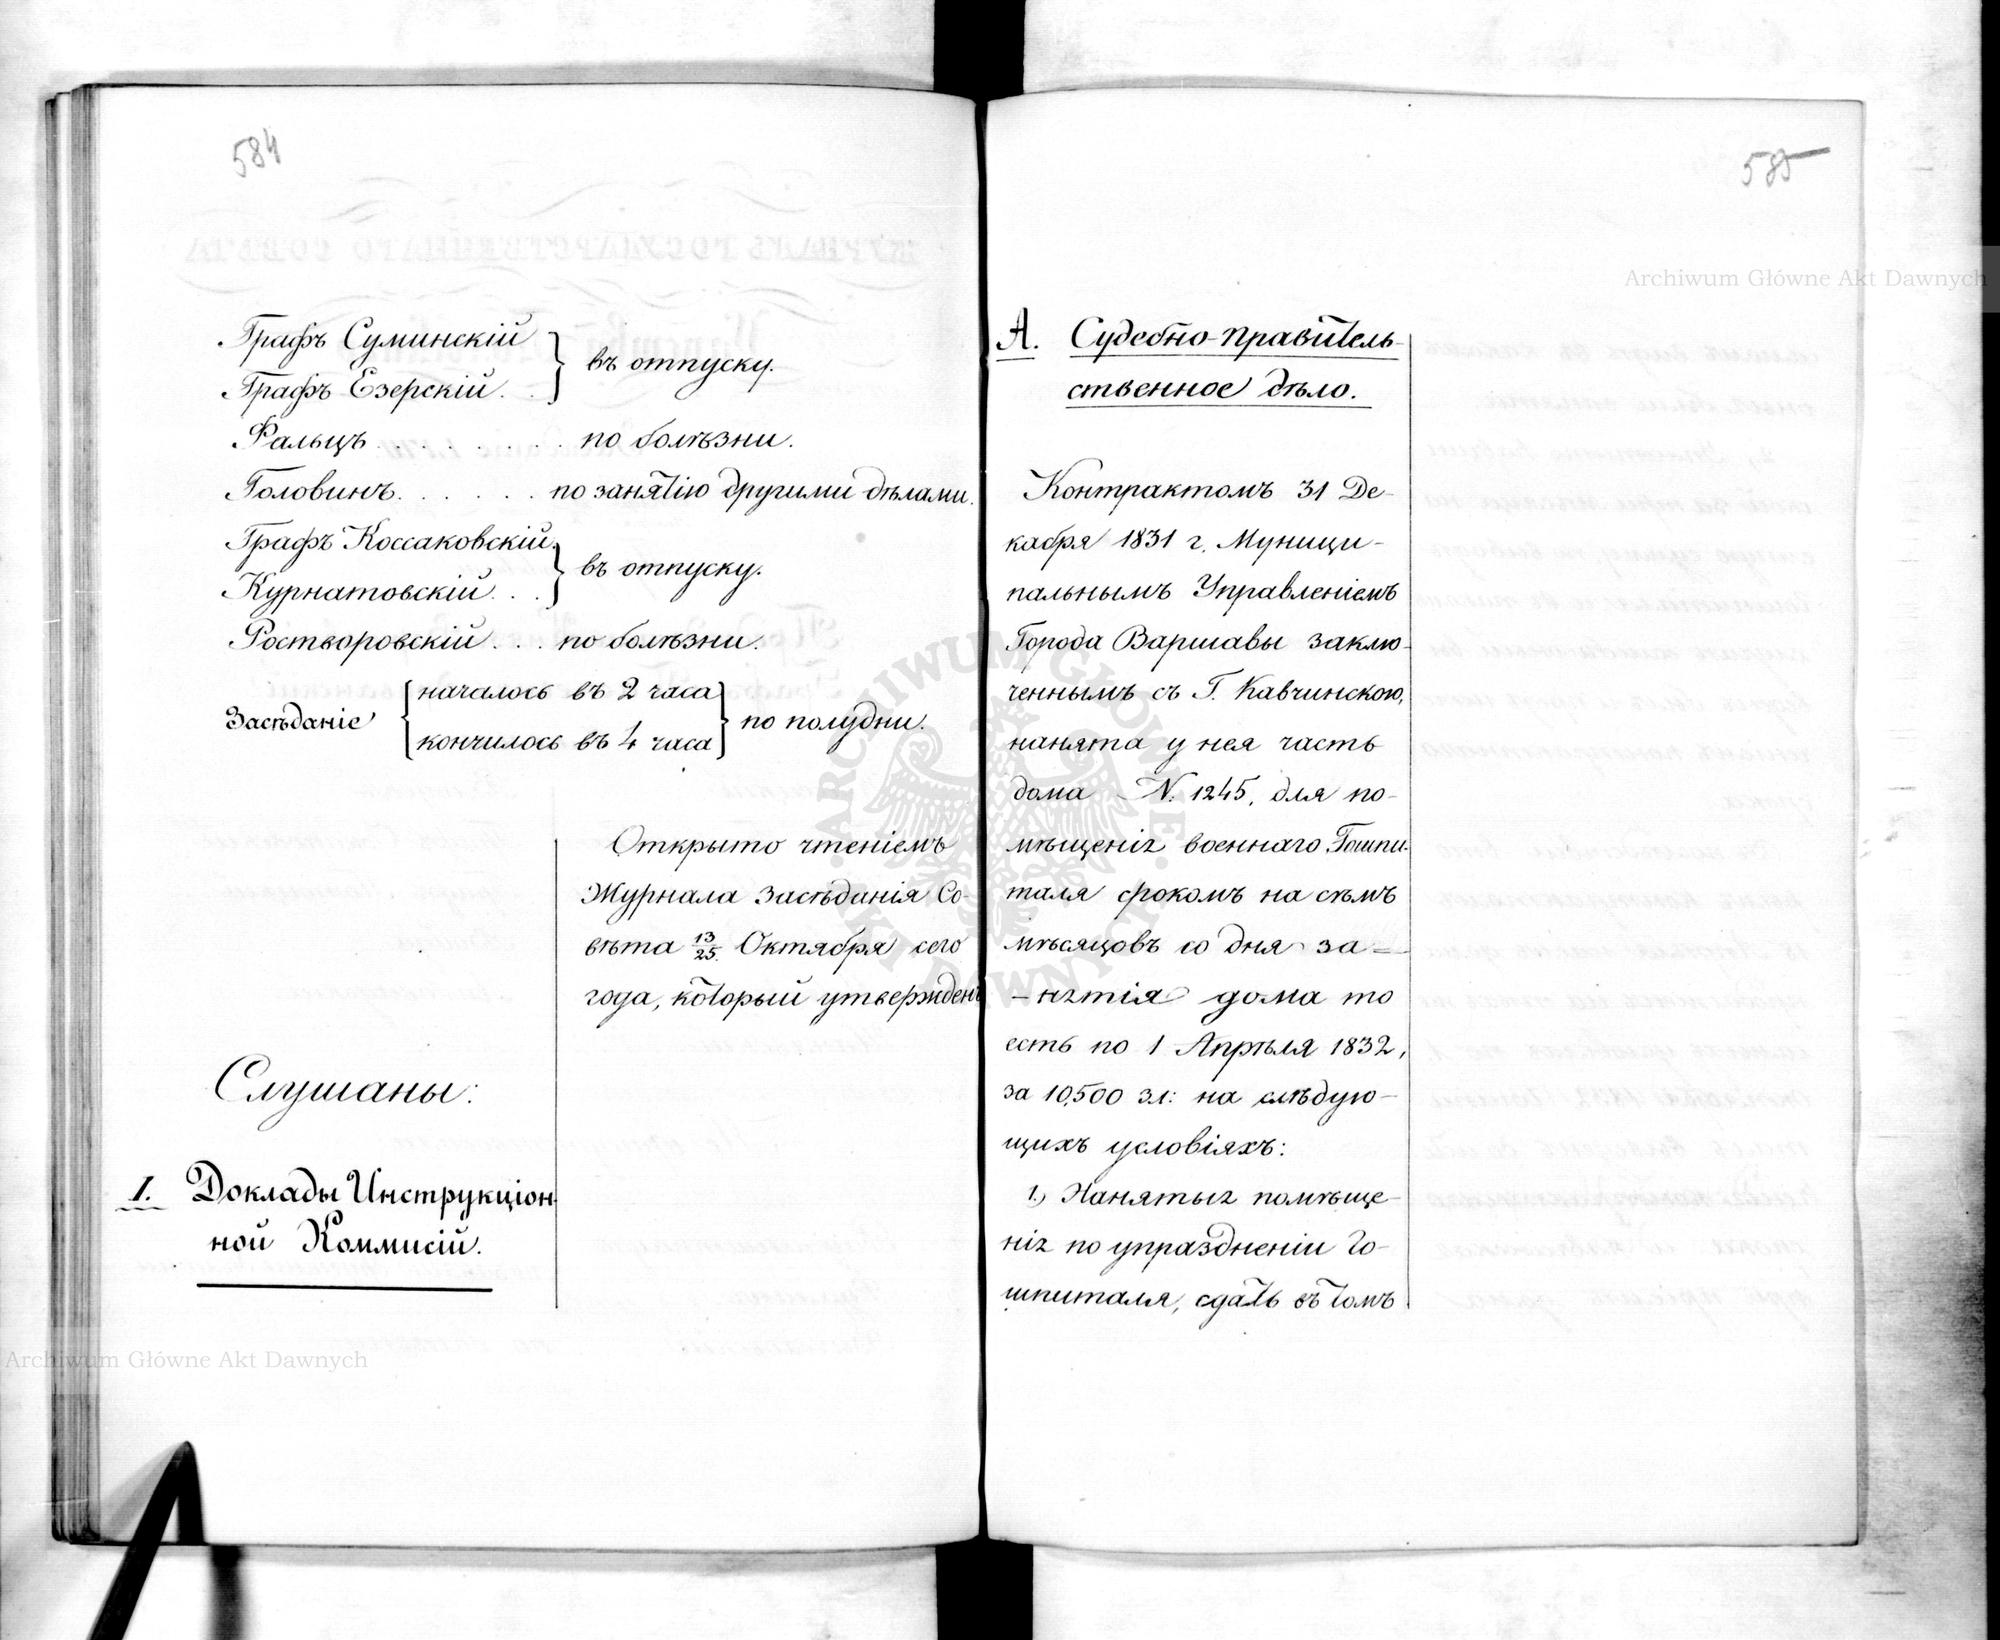 584
Графъ Суминскій
Графъ Езерскій . . } въ отпуску.
Фальцъ . . . . . . . по болѣзни.
Головинъ. . . . . . по занятію другими дѣлами.
Графъ Коссаковскій.
Курнатовскій . . . } въ отпуску.
Ростворовскій . . . по болѣзни.
Засѣданіе { началось въ 2 часа
кончилось въ 4 часа } по полудни.
Открыто чтеніемъ
Журнала Засѣданія Со-
вѣта 13/25. Октября сего
года, который утвержденъ
Слушаны:
I. Доклады Инструкціон-
ной Коммисій.
585
А. Судебно-правитель-
ственное дѣло.
Контрактомъ 31 Де-
кабря 1831 г. Муници-
пальнымъ Управленіемъ
Города Варшавы заклю-
ченнымъ съ Г. Кавчинскою,
нанята у нея часть
дома N. 1245, для по-
мѣщенія военнаго Гошпи-
таля срокомъ на сѣмъ
мѣсяцовъ со дня за=
-нятія дома то
есть по 1 Апрѣля 1832,
за 10,500 зл: на слѣдую-
щихъ условіяхъ:
1.) Нанятыя помѣще-
нія по упраздненіи Го-
шпиталя, сдать въ томъ
Archiwum Główne Akt Dawnych
Archiwum Główne Akt Dawnych
ARCHIWUM GŁÓWNE AKT DAWNYCH